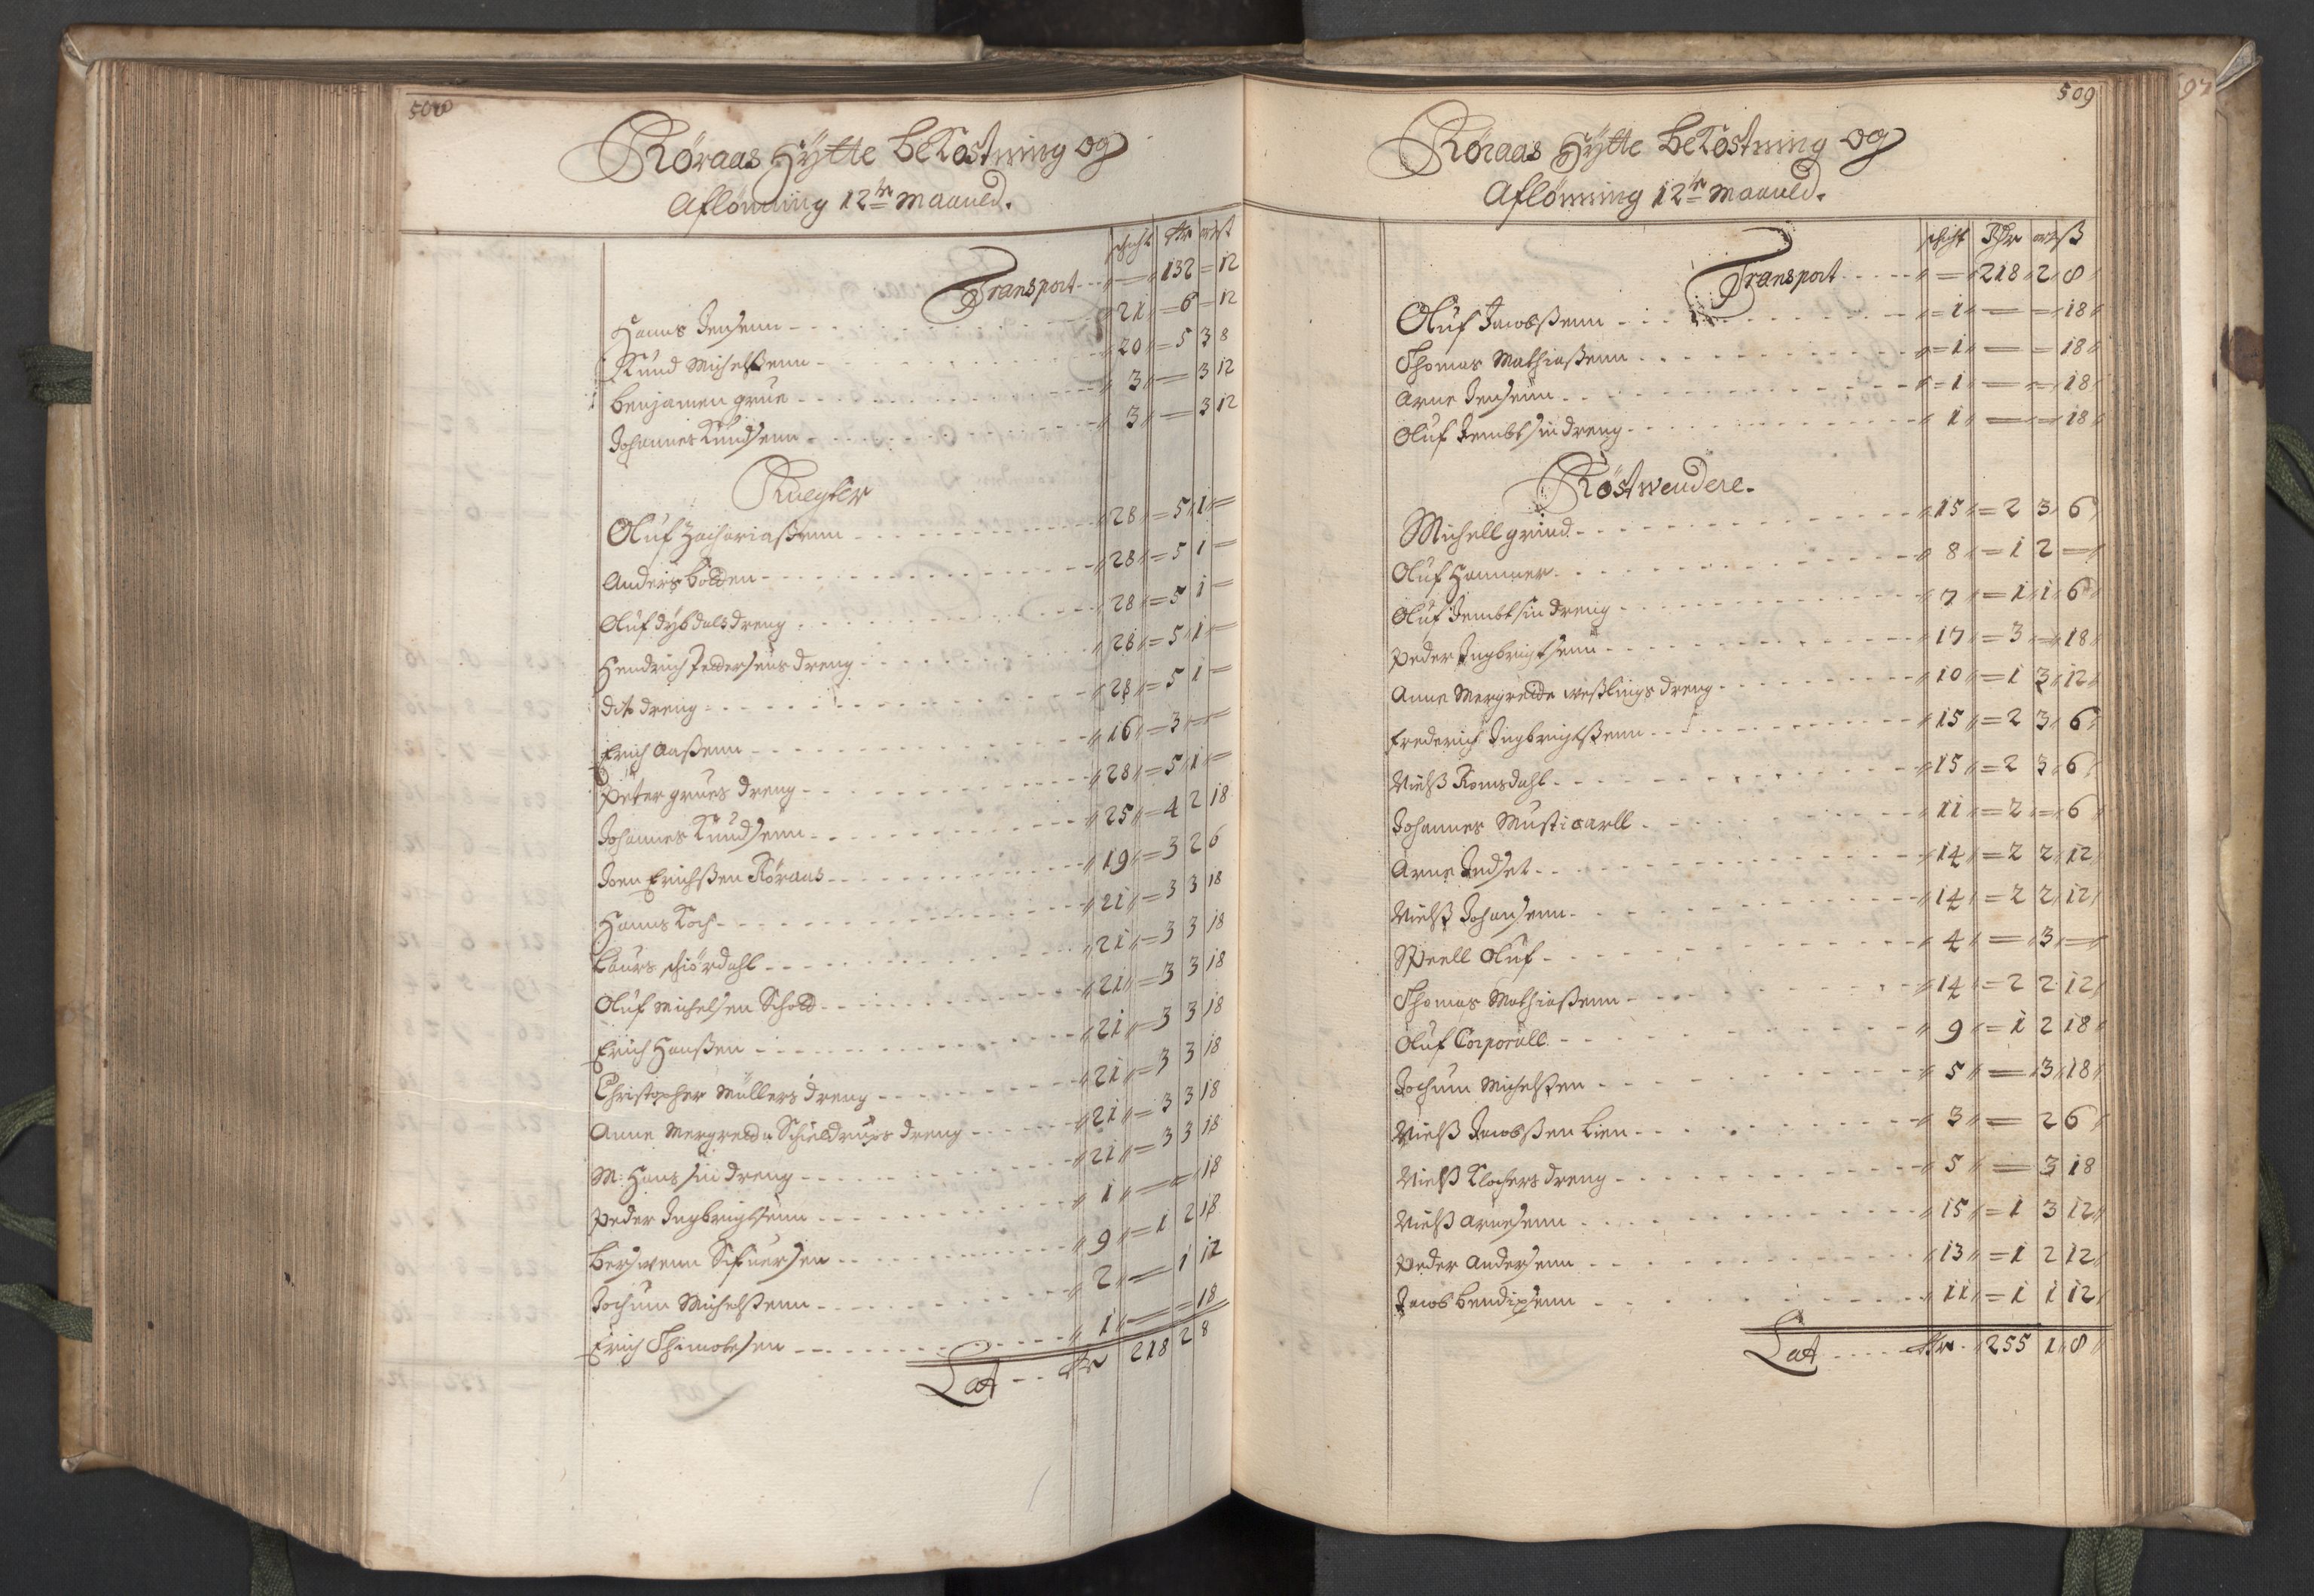 508
Røraas Hÿtte beKostning og
Aflønning 12te Maanedt.
schicht Rdr ort ß
Transport - - - " = " 132 = 12
Hanns Jensenn - - - " 21 " = 6 = 12
Knud Michelßenn - - - " 20 " = 5 3 8
Benjamen grue - - - " 3 " = 3 12
Johannes Knudsenn - - - " 3 " = 3 12
Knegter
Oluf Zachariaßenn - - - " 28 " = 5 " 1 " =
Anders bolden - - - " 28 " = 5 1 =
Oluf dÿbdals dreng - - - " 28 " = 5 1 =
Hendrich Pedersens dreng - - - " 28 " = 5 " 1 " =
dito dreng - - - " 28 " = 5 1 =
Erich Aaßenn - - - " 16 " = 3 " = " =
Peter grues dreng - - - " 28 " = 5 " 1 " =
Johannes Knudsenn - - - " 25 " = 4 2 18
Joen Erichßen Røraas - - - " 19 " = 3 2 6
Hanns Koch - - - " 21 " = 3 3 18
Laurs schiørdahl - - - " 21 " = 3 3 18
Oluf Michelsen Schott - - - " 21 " = 3 3 18
Erich Hanßen - - - " 21 " = 3 3 18
Christopher Müllers dreng - - - " 21 " = 3 3 18
Anne Mergrette Schieldrups dreng - - - " 21 " = 3 3 18
M: Hans sin dreng - - - " 21 " = 3 3 18
Peder Ingbrigtsenn - - - " 1 " = = 18
Berswenn Sifuersen - - - " 9 " = 1 2 18
Jochum Michelßenn - - - " 2 " = 1 12
Erich Thimotesen - - - " 1 " = = 18
Lat - - Rdr 218 2 8
509
Røraas Hÿtte beKostning og
Aflønning 12te Maanedt.
schicht Rdr ort ß
Transport - - - " = " 218 " 2 " 8 "
Oluf Jacobßenn - - - " = 1 " = = " 18 "
Thomas Mathiaßenn - - - " = 1 " = = 18 "
Arne Jensenn - - - " = 1 = = " 18 "
Oluf Jembt sin dreng - - - " 1 " = = " 18 "
Röstwendere.
Michell grind - - - " 15 " = 2 3 " 6 "
Oluf Hammer - - - " 8 " = 1 2 = "
Oluf Jembt sin dreng - - - " 7 " = 1 " 1 " 6 "
Peder Ingbrigtsenn - - - " 17 " = 3 " = " 18 "
Anne Mergrette Weßlings dreng - - - " 10 " = 1 3 " 12 "
Frederich Ingbrigtßenn - - - " 15 " = 2 3 " 6 "
Nielß Romsdahl - - - " 15 " = 2 3 " 6 "
Johannes Mustioarll - - - " 11 " = 2 " = " 6 "
Arne Indset - - - " 14 " = 2 2 " 12 "
Nielß Johansenn - - - " 14 " = 2 2 " 12 "
Speell Oluf - - - " 4 " = " 3 " = "
Thomas Mathiaßenn - - - " 14 " = 2 2 12 "
Oluf Corporall - - - " 9 " = 1 2 18 "
Jochum Michelßen - - - " 5 " = " 3 " 18 "
Nielß Jacobßen Lien - - - " 3 " = 2 6 "
Nielß Klochers dreng - - - " 5 " = 3 18
Nielß Arnesenn - - - " 15 " = 1 3 12 "
Peder Andersenn - - - " 13 " = 1 2 12 "
Jacob bendixsenn - - - " 11 " = 1 1 12 "
Lat - - - - Rdr. " 255 1 " 8 "